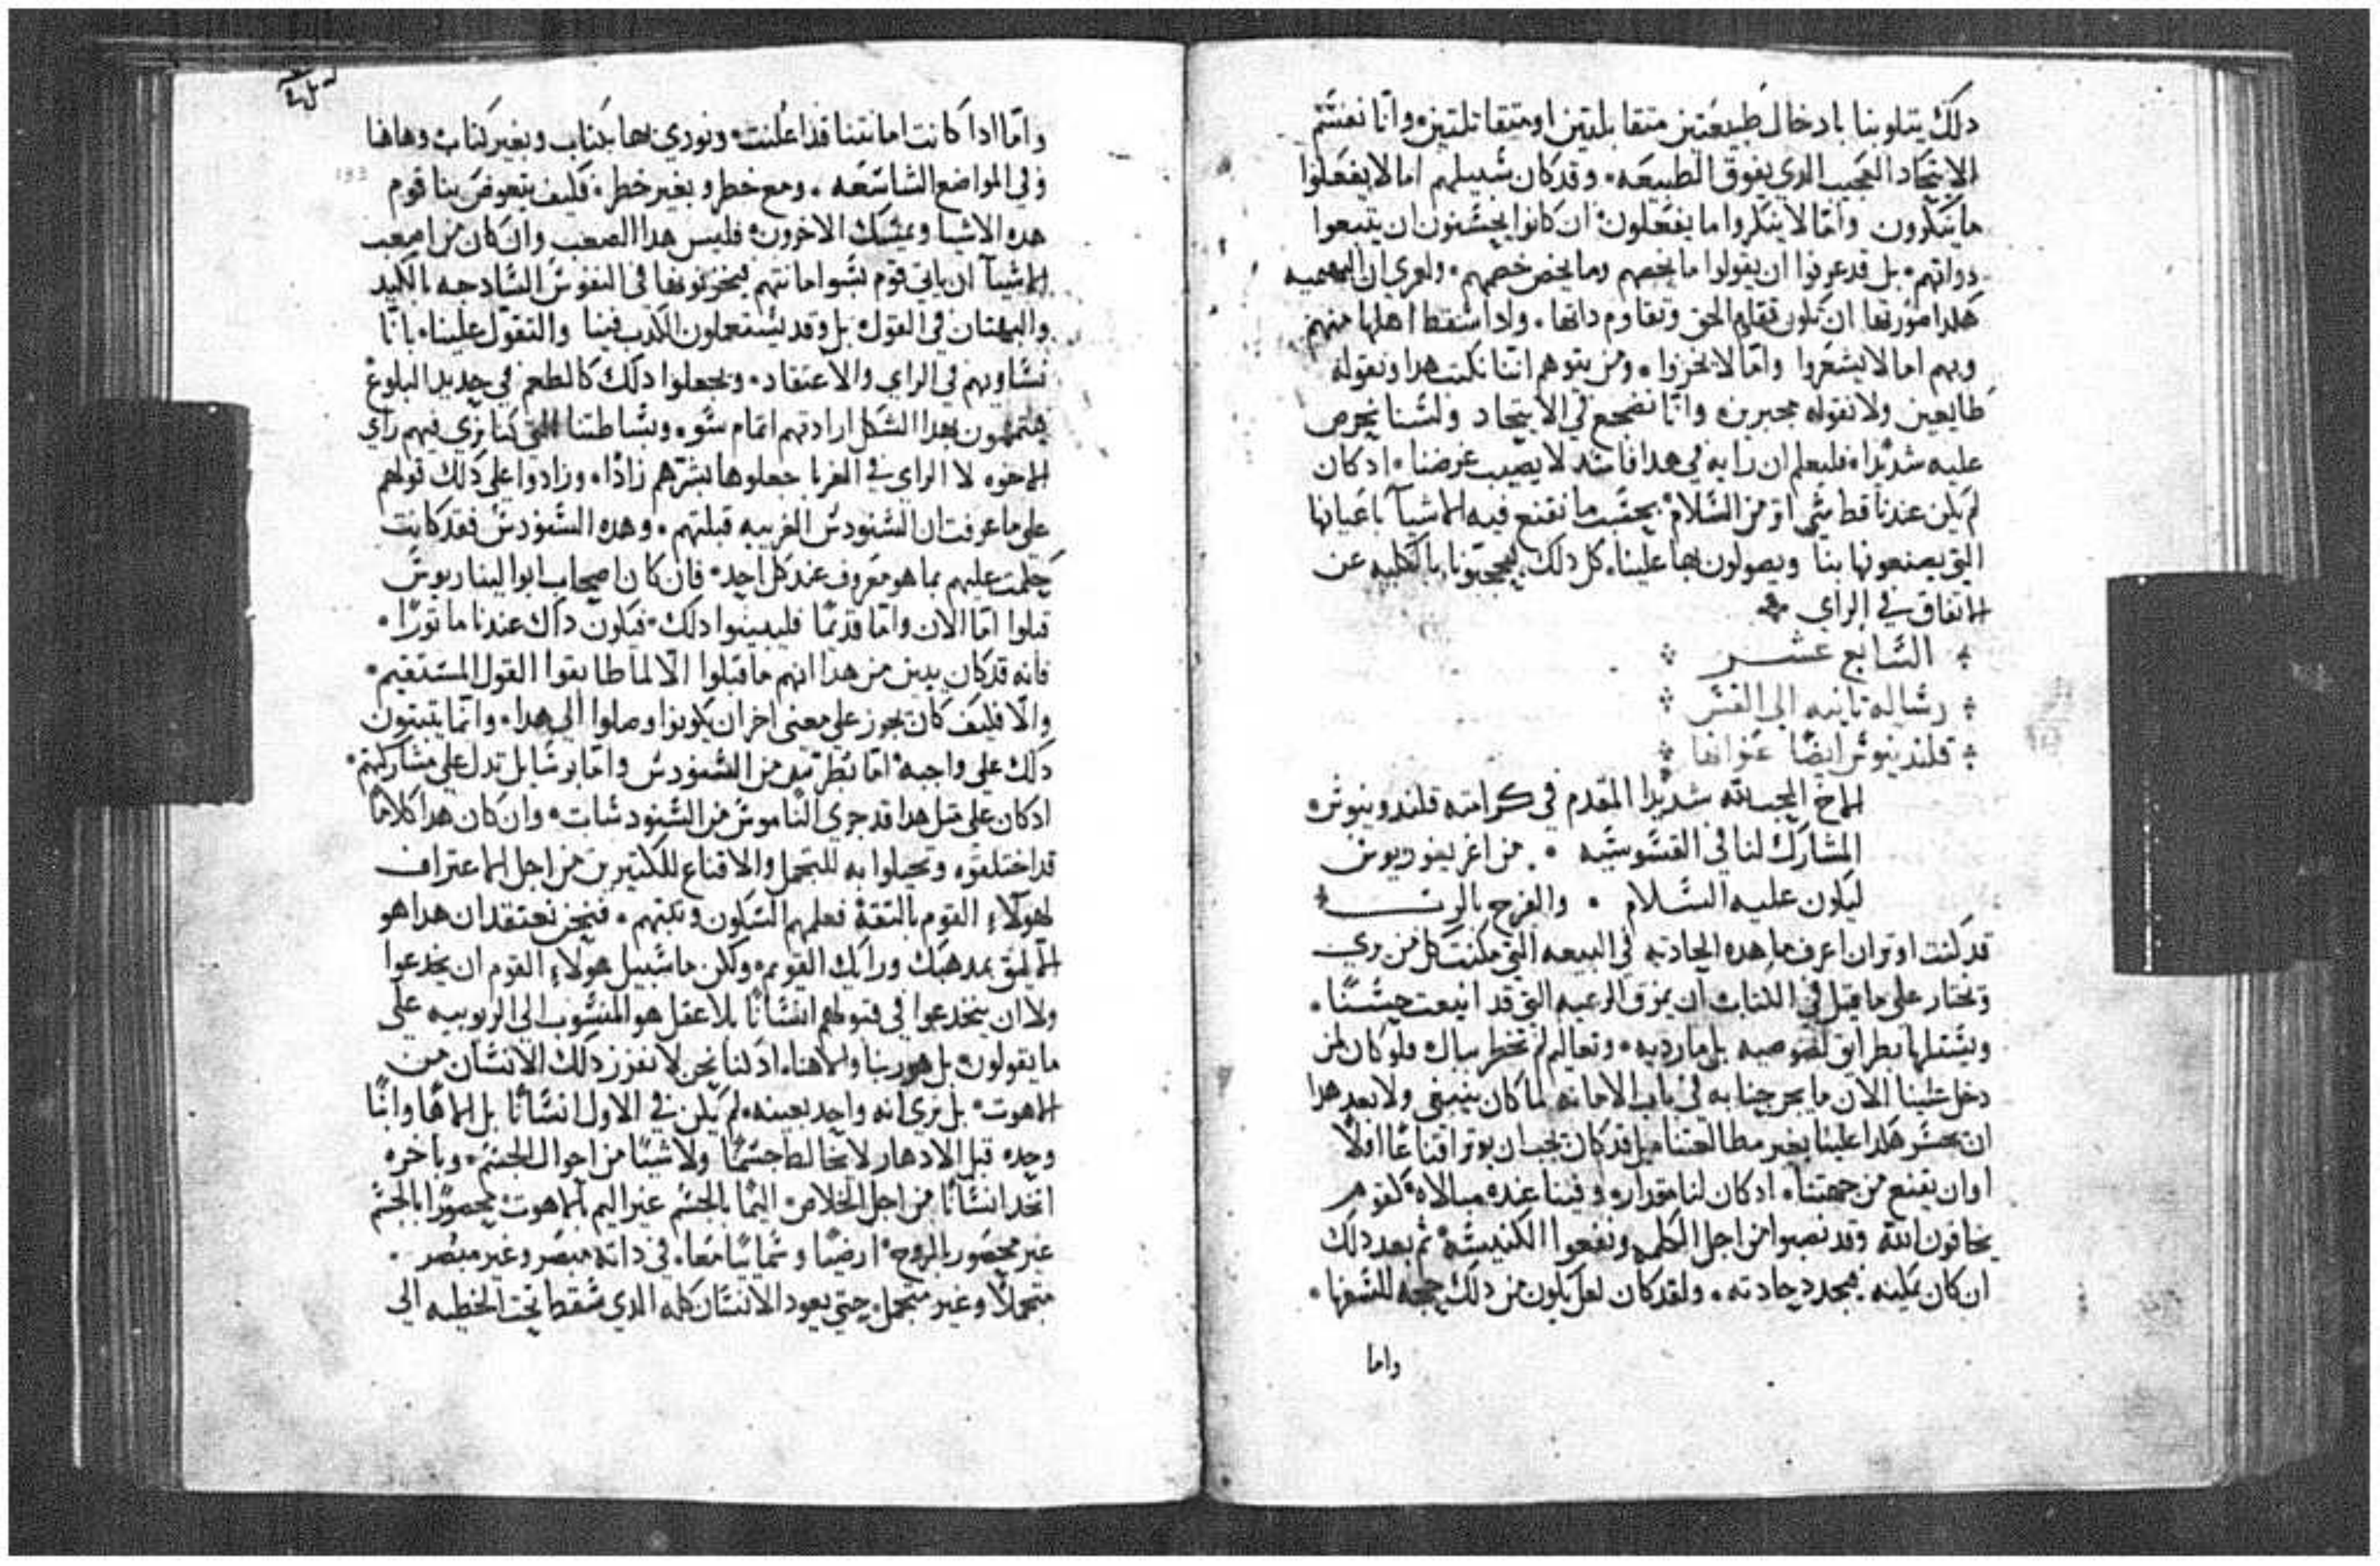 دلك يتلوبنا بادخال طبيعتين متقابلتين او متقاتلتين وانا نفتتم
الاتحاد العجيب الدي يفوق الطبيعه وقد كان سبيلهم اما لا يفعلوا
ما ينكرون واما لا ينكروا ما يفعلون ان كانوا يحسنون ان يتبعوا
دواتهم بل قد عرفوا ان يقولوا ما يخصهم وما يخص خصمهم ولعري ان البهيميه
هكدا صورتها ان تكون تقاوم الحق وتقاوم داتها وادا سقط اهلها منهم
وبهم اما لا يشعروا واما لا يخزوا ومن يتوهم اننا نكتب هدا ونقوله
طايعين ولا نقوله مجبرين وانا نضجع في الاتحاد ولسنا نحرص
عليه شديدا فليعلم ان رايه في هدا فاسد لا يصيب غرضنا اد كان
لم يكن عندنا قط شي اوتر من السلام بحسب ما نقنع فيه الاشيا باعيانها
التي يصنعونها بنا ويصولون بها علينا كل دلك يحجبونا بالكليه عن
الاتفاق في الراي
السابع عشر
رساله تانيه الي القس
قلندينوس ايضا عنوانها
الاخ المحب لله شديدا المقدم في كرامته قلندونيوس
المشارك لنا في القسوسيه من اغريغوريوس
ليكون عليه السلام والفرح بالرب
قد كنت اوتر ان اعرف ما هده الحادته في البيعه التي مكنت كل من ري
وتختار علي ما قيل في الكتاب ان يمزق الرعيه التي قد انبعت حسنا
ويشتلها بطرايق لصوصيه بل مارديه وتعاليم لم تخطر ببال فلو كان لمن
دخل علينا الان ما يحرجنا به في باب الامانه لما كان ينبغي ولا بعد هدا
ان يحسر هكدا علينا بغير مطالعتنا بل قد كان يجب ان يوتر اقناعا اولا
او ان يقنع من جهتنا اد كان لنا مقدار وفينا عنده مبالاه كقوم
يخافون الله وقد نصبوا من اجل الكلمه ونفعوا الكنيسه ثم بعد دلك
ان كان يمكنه يجدد حادته ولقد كان لعل يكون من دلك حجه للسفها
واما
واما ادا كانت امانتنا قد اعلنت ونودي بها بكتاب وبغير كتاب وهاهنا
وفي المواضع الشاسعه ومع خطر وبغير خطر فكيف يتعوض بنا قوم
هده الاشيا ويمسك الاخرون فليس هدا الصعب وان كان من اصعب
الاشيا ان ياتي قوم بسوا امانتهم فيحزنونها في النفوس السادجه بالكيد
والبهتان في القول بل وقد يستعملون الكدب فينا والتقول علينا بانا
نساويهم في الراي والاعتقاد ويجعلوا دلك كالطعم في حديد البلوغ
يتممون بهدا الشكل ارادتهم اتمام سوء وبساطتنا التي كنا نري فيهم راي
الاخوه لا الراي في الغربا جعلوها بشرهم زادا وزادوا علي دلك قولهم
علي ما عرفت ان السنودس الغريبه قبلتهم وهده السنودس فقد كانت
حكمت عليهم بما هو معروف عند كل احد فان كان اصحاب ابوليناريوس
قبلوا اما الان واما قديما فليبينوا دلك فيكون داك عندنا ماتورا
فانه قد كان يبين من هدا انهم ما قبلوا الا لما طابقوا القول المستقيم
والا فكيف كان يجوز علي معني اخر ان يكونوا وصلوا الي هدا وانما يتبتون
دلك علي واجبه اما بطرتيق من السنودس واما برسايل تدل علي مشاركتهم
اد كان علي متل هدا قد جري الناموس من السنودسات وان كان هدا كلاما
قد اختلقوه وتحيلوا به للتجمل والاقناع للكتيرين من اجل الاعتراف
لهولاء القوم بالتقه فعلمهم السكون وبكتهم فنحن نعتقد ان هدا هو
الاليق بمدهبك ورايك القويم ولكن ما سبيل هولاء القوم ان يخدعوا
ولا ان ينخدعوا في قبولهم انسانا بلا عقل هو المنسوب الي الربوبيه علي
ما يقولون بل هو ربنا والاهنا اد لنا نحن لا نفرز دلك الانسان من
الاهوت بل نري انه واحد بعينه لم يكن في الاول انسانا بل الاها وابنا
وحده قبل الادهار لا يخالط جسما ولا شيا من احوال الجسم وباخره
اتخد انسانا من اجل الخلاص اليما بالجسم غير اليم بالاهوت محصورا بالجسم
غير محصور بالروح ارضيا وسمايا معا في داته مبصر وغير مبصر
متحملا وغير متحمل حتي يعود الانسان كله الدي سقط تحت الخطيه الي